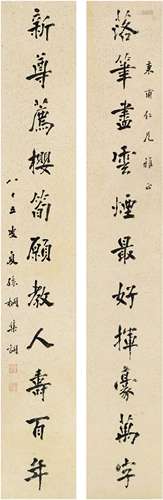 東甫仁兄雅正
落筆盡雲煙最好揮豪萬字
新尊薦櫻筍願教人壽百年
八十五叟夏孫桐集詞